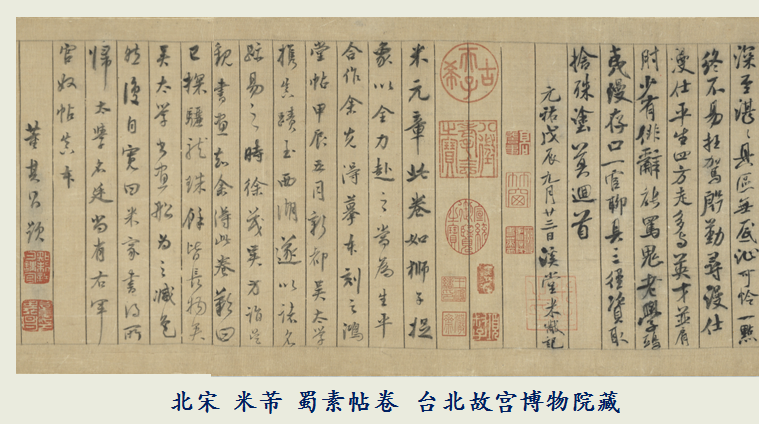 深至湛湛具區無底沚可怜一點
終不易枉駕殷勤尋漫仕
漫仕平生四方走多與英才並肩
肘少有俳辭能罵鬼老學鴟
夷漫存口一官聊具三徑資取
捨殊塗莫迴首
元祐戊辰九月廿三日溪堂米黻記
古希天子
米元章此卷如獅子捉
象以全力赴之當為生平
合作余先得摹本刻之鴻
堂帖甲辰五月新都吳太學
攜真蹟至西湖遂以諸名
跡易之時徐茂吳方詣吳
觀書畫知余得此卷歎曰
已探驪龍珠餘皆長物矣
吳太學書畫船為之減色
然復自寬曰米家書得所
歸太學名廷尚有右軍
官奴帖真本
董其昌題
北宋 米芾 蜀素帖卷 台北故宫博物院藏